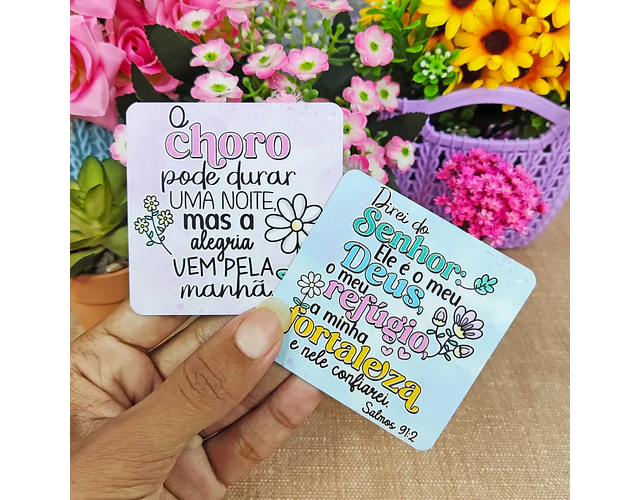 O
choro
pode durar
UMA NOITE,
mas a
alegria
VEM PELA
manhã
Direi do
Senhor:
Ele é o meu
Deus,
o meu
refúgio,
a minha
fortaleza
e nele confiarei.
Salmos 91:2